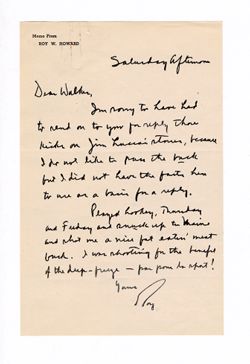 Memo From
ROY W. HOWARD
Saturday Afternoon
Dear Walker,
I'm sorry to have had
to send on to you for reply those
kicks on Jim Lucas's stories, because
I do not like to pass the buck
but I did not have the facts here
to use as a basis for a reply.
Thursday
and Friday and up to Maine
and shot me a nice fat eatin' meat
buck. I was shooting for the benefit
of the deep-freeze – pas pour le sport!
Yours
Roy